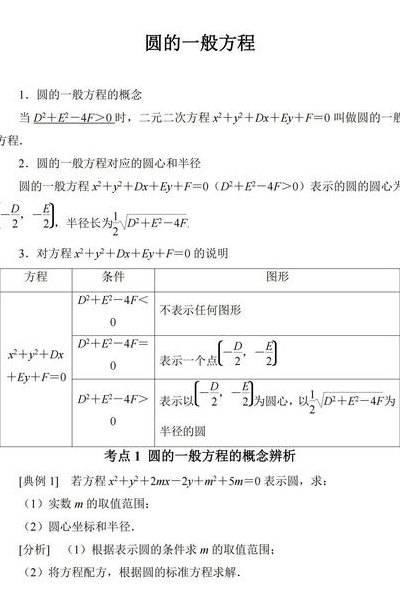 圆的一般方程
1．圆的一般方程的概念
当 D²＋E²－4F＞0 时，二元二次方程 x²＋y²＋Dx＋Ey＋F＝0 叫做圆的一般
方程．
2．圆的一般方程对应的圆心和半径
圆的一般方程 x²＋y²＋Dx＋Ey＋F＝0（D²＋E²－4F＞0）表示的圆的圆心为
(－D/2，－E/2)，半径长为1/2√(D²＋E²－4F).
3．对方程 x²＋y²＋Dx＋Ey＋F＝0 的说明
方程 条件 图形
x²＋y²＋Dx
＋Ey＋F＝0
D²＋E²－4F＜
0
不表示任何图形
D²＋E²－4F＝
0
表示一个点(－D/2，－E/2)
D²＋E²－4F＞
0
表示以(－D/2，－E/2)为圆心，以1/2√(D²＋E²－4F)为
半径的圆
考点 1 圆的一般方程的概念辨析
[典例 1] 若方程 x²＋y²＋2mx－2y＋m²＋5m＝0 表示圆，求：
（1）实数 m 的取值范围；
（2）圆心坐标和半径．
[分析] （1）根据表示圆的条件求 m 的取值范围；
（2）将方程配方，根据圆的标准方程求解．